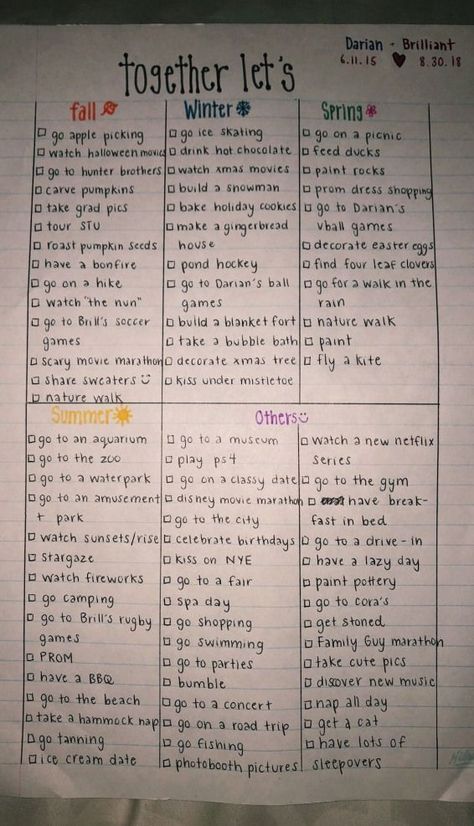 Darian - Brilliant
6.11.15 ♥ 8.30.18
together let's
fall
□ go apple picking
□ watch halloween movies
□ go to hunter brothers
□ carve pumpkins
□ take grad pics
□ tour STU
□ roast pumpkin seeds
□ have a bonfire
□ go on a hike
□ watch "the nun"
□ go to Brill's soccer
games
□ scary movie marathon
□ share sweaters
□ nature walk
Winter
□ go ice skating
□ drink hot chocolate
□ watch xmas movies
□ build a snowman
□ bake holiday cookies
□ make a gingerbread
house
□ pond hockey
□ go to Darian's ball
games
□ build a blanket fort
□ take a bubble bath
□ decorate xmas tree
□ kiss under mistletoe
Spring
□ go on a picnic
□ feed ducks
□ paint rocks
□ prom dress shopping
□ go to Darian's
vball games
□ decorate easter eggs
□ find four leaf clovers
□ go for a walk in the
rain
□ nature walk
□ paint
□ fly a kite
Summer
□ go to an aquarium
□ go to the zoo
□ go to a waterpark
□ go to an amusement
t park
□ watch sunsets/rise
□ stargaze
□ watch fireworks
□ go camping
□ go to Brill's rugby
games
□ PROM
□ have a BBQ
□ go to the beach
□ take a hammock nap
□ go tanning
□ ice cream date
Others
□ go to a museum
□ play ps4
□ go on a classy date
□ disney movie marathon
□ go to the city
□ celebrate birthdays
□ kiss on NYE
□ go to a fair
□ spa day
□ go shopping
□ go swimming
□ go to parties
□ bumble
□ go to a concert
□ go on a road trip
□ go fishing
□ photobooth pictures
□ watch a new netflix
series
□ go to the gym
□ have break-
fast in bed
□ go to a drive-in
□ have a lazy day
□ paint pottery
□ go to cora's
□ get stoned
□ Family Guy marathon
□ take cute pics
□ discover new music
□ nap all day
□ get a cat
□ have lots of
sleepovers